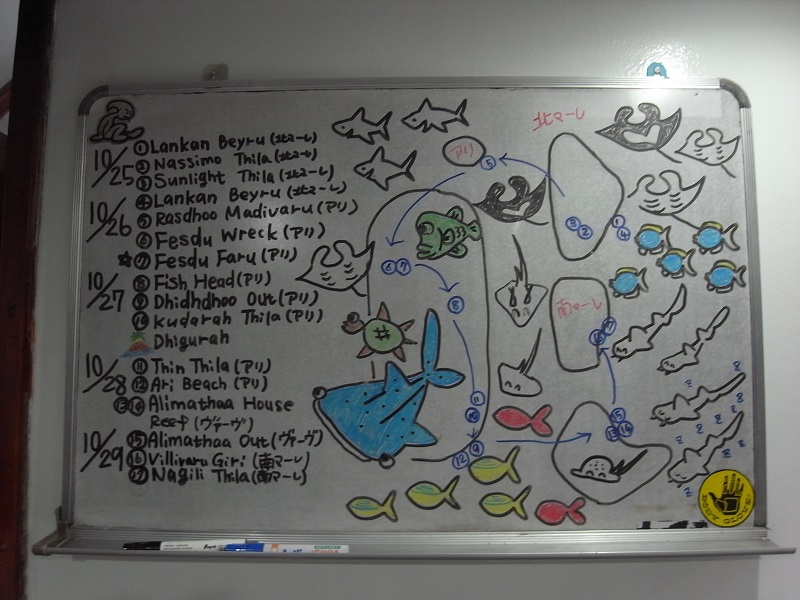 10/25 ①Lankan Beyru (北マーレ)
② Nassimo Thila (北マーレ)
③ Sunlight Thila (北マーレ)
10/26 ④ Lankan Beyru (北マーレ)
⑤ Rasdhoo Madivaru (アリ)
⑥ Fesdu Wreck (アリ)
☆⑦ Fesdu Faru (アリ)
10/27 ⑧ Fish Head (アリ)
⑨ Dhidhdhoo Out (アリ)
⑩ Kudarah Thila (アリ)
Dhigurah
10/28 ⑪ Thin Thila (アリ)
⑫ Ari Beach (アリ)
⑬⑭ Alimathaa House
Reef (ヴァーヴ)
10/29 ⑮ Alimathaa Out (ヴァーヴ)
⑯ Villivaru Giri (南マーレ)
⑰ Nagili Thila (南マーレ)
北マーレ
アリ
⑤
③②
①
④
南マーレ
⑥⑦
⑧
⑯⑰
⑪
⑮
⑬⑭
⑫⑨
BODY GLOVE